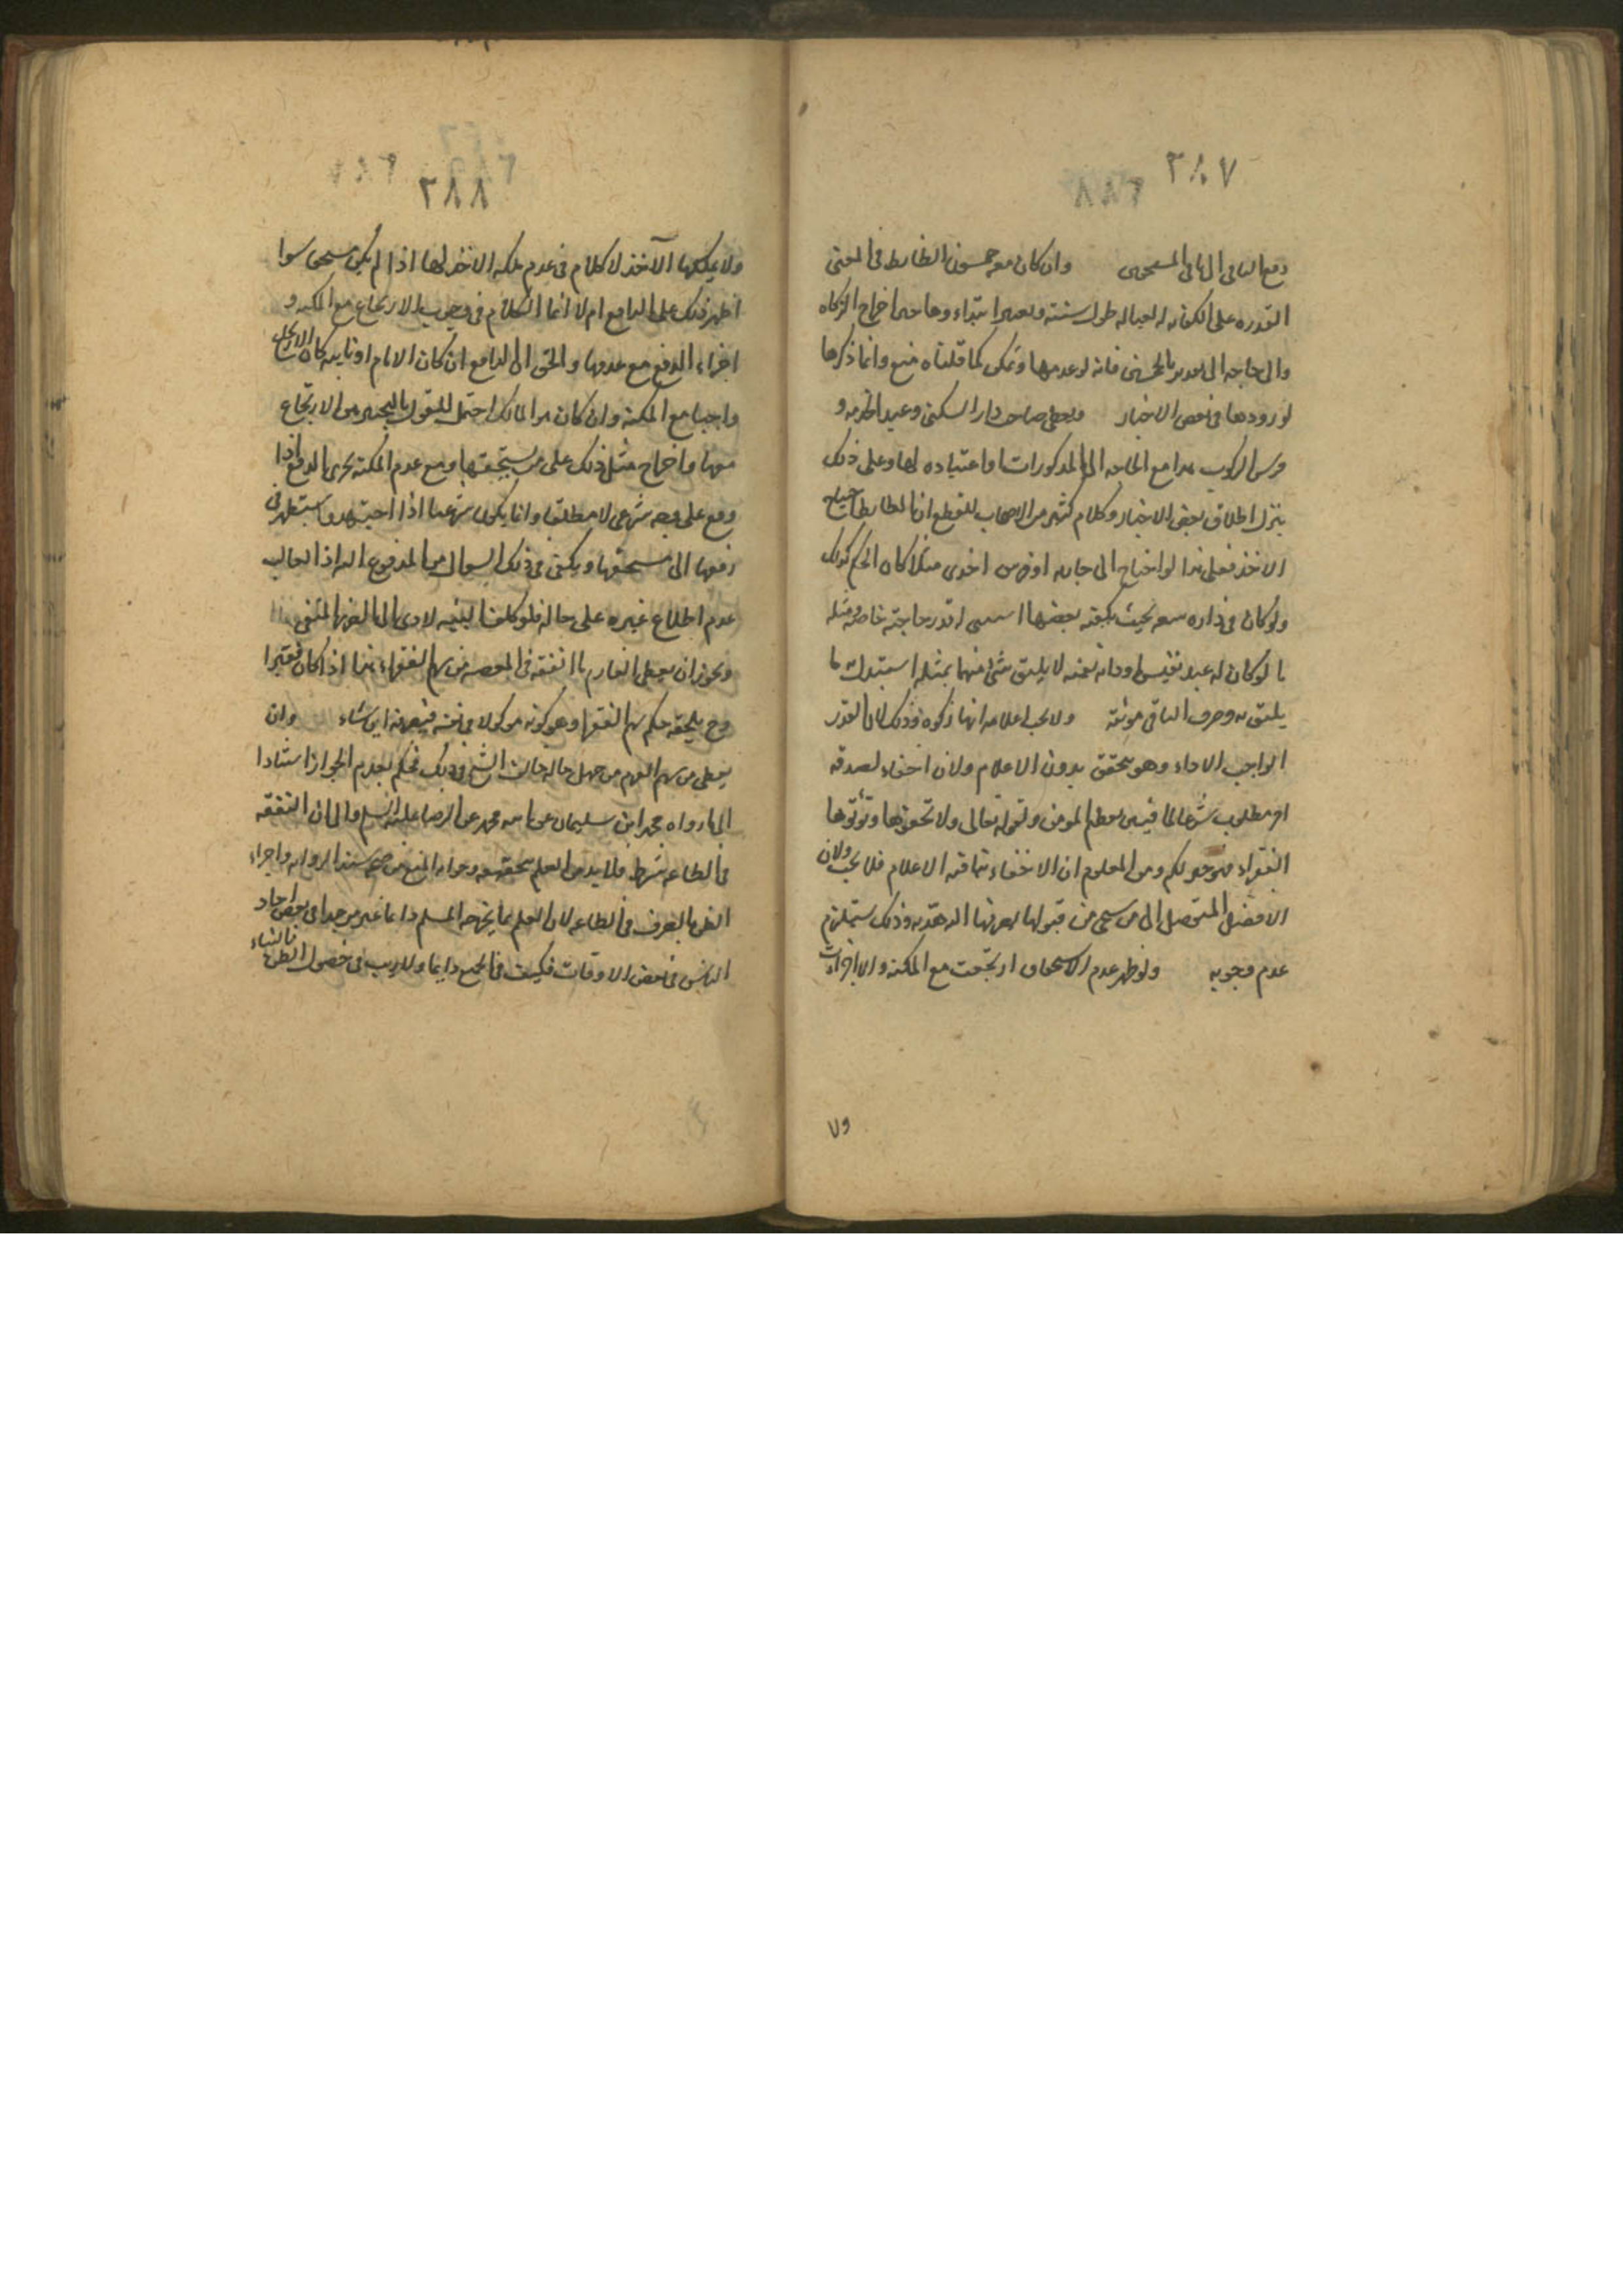 ٢٨٧
دفع الباقي الى باقي المستحقين وان كان معه خمسون الضابط في الغنى
القدره على الكفايه له لعياله طول سنته وتعتبر ابتداء وها حين اخراج الزكاه
والى حاجه الى تقدير بالخمسين فانه لو عدمها وتمكن كما قلناه منع وانما ذكرها
لورودها في بعض الاخبار ويعطى صاحب دار السكنى وعبد الخدمه و
فرس الركوب هذا مع الحاجه الى المذكورات او اعتياده لها وعلى ذلك
ينزل اطلاق بعض الاخبار وكلام كثير من الاصحاب للقطع ان الضابط احتياج
الاخذ فعلى هذا لو احتاج الى جاريه او فرس اخرى مثلا كان الحكم كذلك
ولو كان في داره سعه بحيث يكفيه بعضها قدر حاجته خاصه ومثله
ما لو كان له عبد نفيس او دابه ثمينه لا يليق شئ منهما بمثله استبدل ما
يليق به وصرف الباقي مونته ولا يجب اعلامه انها زكوه وذلك لان القدر
الواجب الاداء وهو يتحقق بدون الاعلام ولان اخفاء الصدقه
امر مطلوب شرعا لما فيه من تعظيم المومن ولقوله تعالى وان تخفوها وتؤتوها
الفقراء فهو خير لكم ومن المعلوم ان الاخفاء ينافيه الاعلام فلا يجب ولان
الافضل التوصل الى من يستحي من قبولها بصرفها اليه هديه وذلك يستلزم
عدم وجوبه ولو ظهر عدم الاستحقاق ارتجعت مع المكنه والا اجزات
٢٨٨
ولا يملكها الآخذ لا كلام في عدم ملكه الاخذ لها اذا لم يكن مستحقا سوا
اظهر ذلك على الدافع ام لا انما الكلام في وجوب الارتجاع مع المكنه و
اجزاء الدفع مع عدمها والحق ان الدافع ان كان الامام او نايبه كان الارتجاع
واجبا مع المكنه وان كان هو المالك احتمل للقول بالتخيير بين الارتجاع
منها واخراج مثل ذلك على من يستحقها ومع عدم المكنه يجزي الدفع اذا
وقع على وجه شرعي لا مطلقا وانما يكون شرعيا اذا اجتهد واستظهر في
دفعها الى مستحقها ويكفي في ذلك السوال من المدفوع اليه اذ الغالب
عدم اطلاع غيره على حاله فلو كلف البينه لادى الى الضرر المنفي
ويجوز ان يعطى الغارم ما انفقه في المعصيه من سهم الفقراء هذا اذا كان فقيرا
وح يلحقه حكم سهم الفقرا وهو كونه موكولا في نفسه فيصرفه اين شاء وان
يعطى من سهم الغرم من جهل حاله خالف الشيخ في ذلك فحكم بعدم الجواز استنادا
الى ما رواه محمد ابن سليمان عن ابي محمد عن الرضا عليه السلم والى ان النفقه
في الطاعه شرط فلا بد من العلم بتحققه وجوابه المنع من صحه سند الروايه واجراء
الظن بالصرف في الطاعه لان العلم بما يخرجه المسلم دايما غير موجود في بعض احاد
الناس في بعض الاوقات فكيف في الجميع دايما ولا ريب في حصول الظن بالشاء
ولا